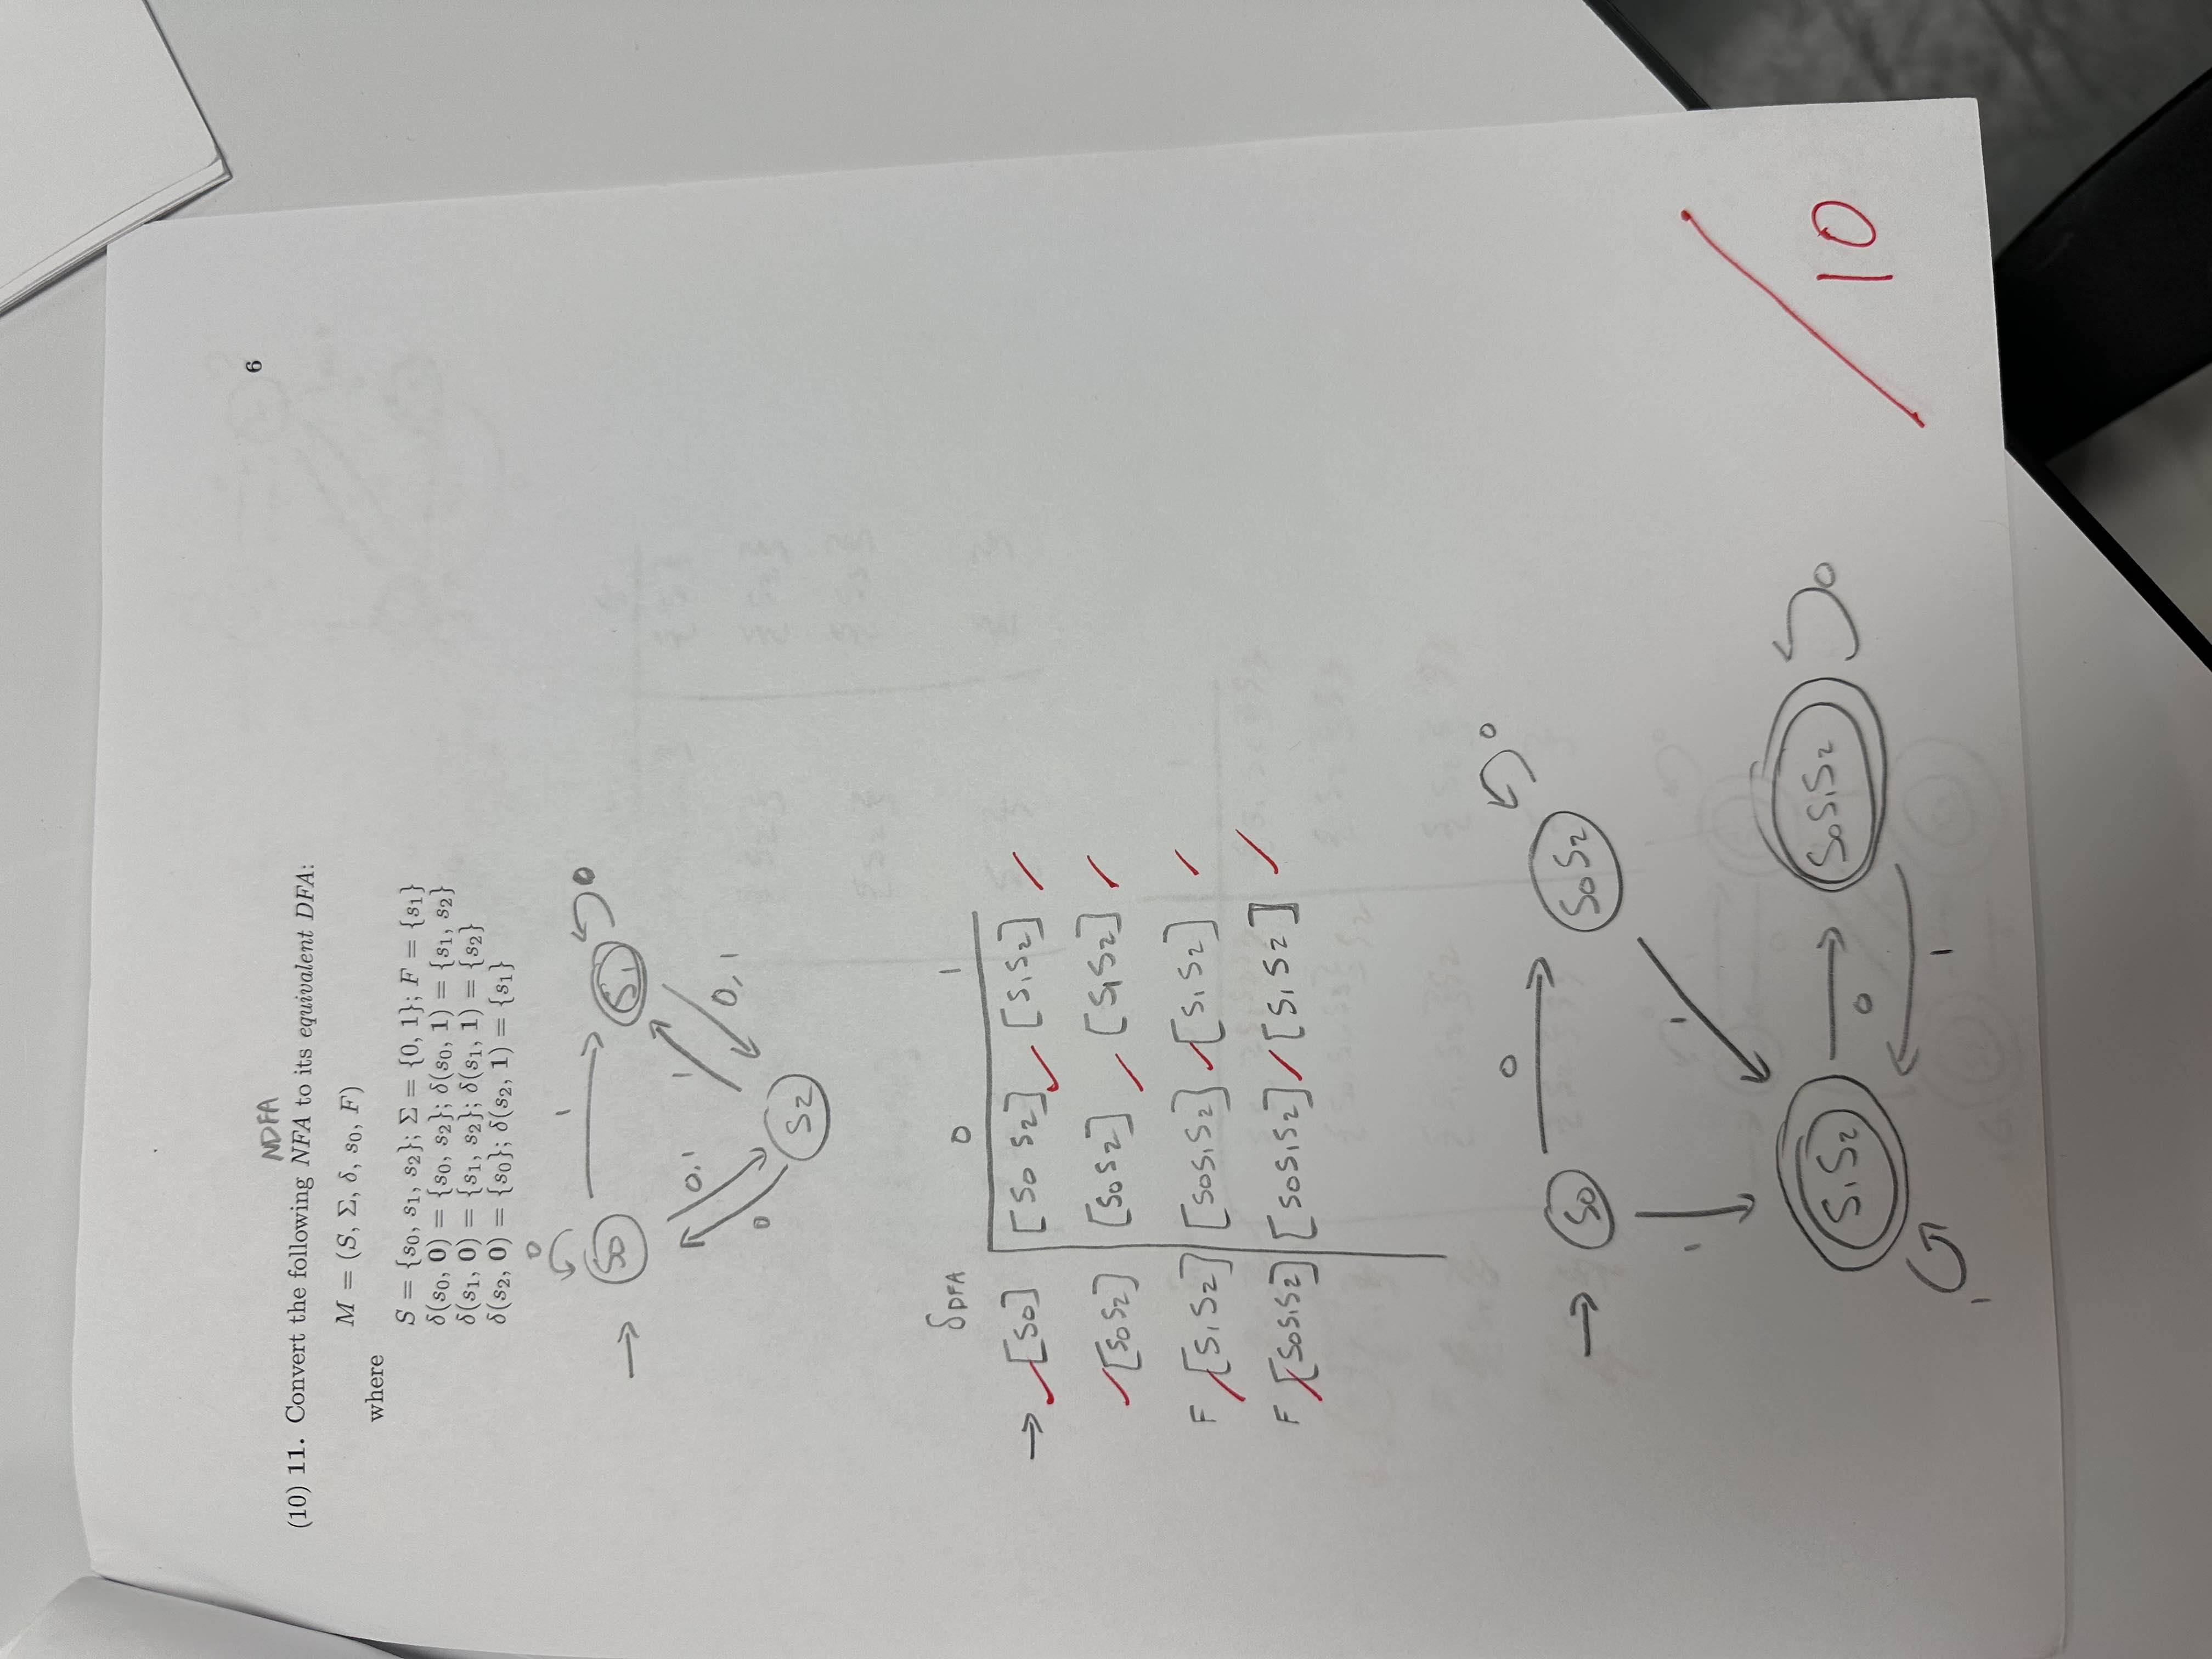 6
NDFA
(10) 11. Convert the following NFA to its equivalent DFA:
M = (S, Σ, δ, s₀, F)
where
S = {s₀, s₁, s₂}; Σ = {0, 1}; F = {s₁}
δ(s₀, 0) = {s₀, s₂}; δ(s₀, 1) = {s₁, s₂}
δ(s₁, 0) = {s₁, s₂}; δ(s₁, 1) = {s₂}
δ(s₂, 0) = {s₀}; δ(s₂, 1) = {s₁}
0 1 0
→ S₀ S₁
0,1 1 0,1
0
S₂
δDFA 0 1
→ ✓ [S₀] [S₀ S₂] ✓ [S₁S₂] ✓
✓ [S₀S₂] [S₀S₂] ✓ [S₁S₂] ✓
F ✓ [S₁S₂] [S₀S₁S₂] ✓ [S₁S₂] ✓
F ✓ [S₀S₁S₂] [S₀S₁S₂] ✓ [S₁S₂] ✓
0 0
→ S₀ S₀S₂
1 1
S₁S₂ 0 S₀S₁S₂ 0
1 1
10